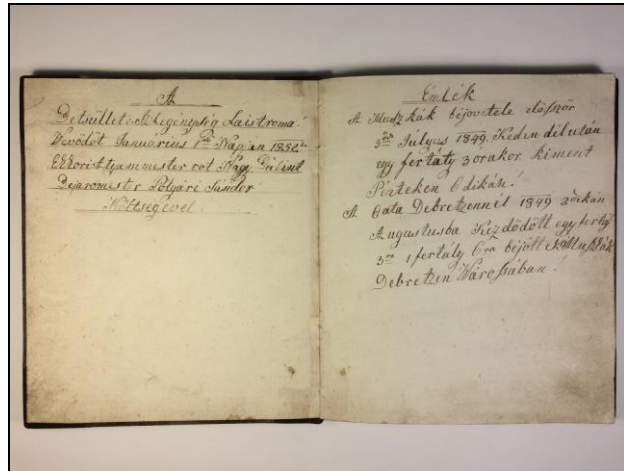 A
Betsülletes Legénység Laistroma!
Vevödöt Januarius 1ső Napján 1852k
Ekkori Atyammester vot Nagy Bálint
Bejaromester Polgári Sándor
Költségével
Emlék
A Muszkák béjövetele elösször
3dik Julyus 1849. Keden dilután
egy fertály 3 orakor. kiment
Pinteken 6dikán!
A Csata Debretzennél 1849 2dikán
Augustusba Kezdödött egy fertály
3ra 1 fertály 6ra béjött a Muszkák
Debretzen Várossában!